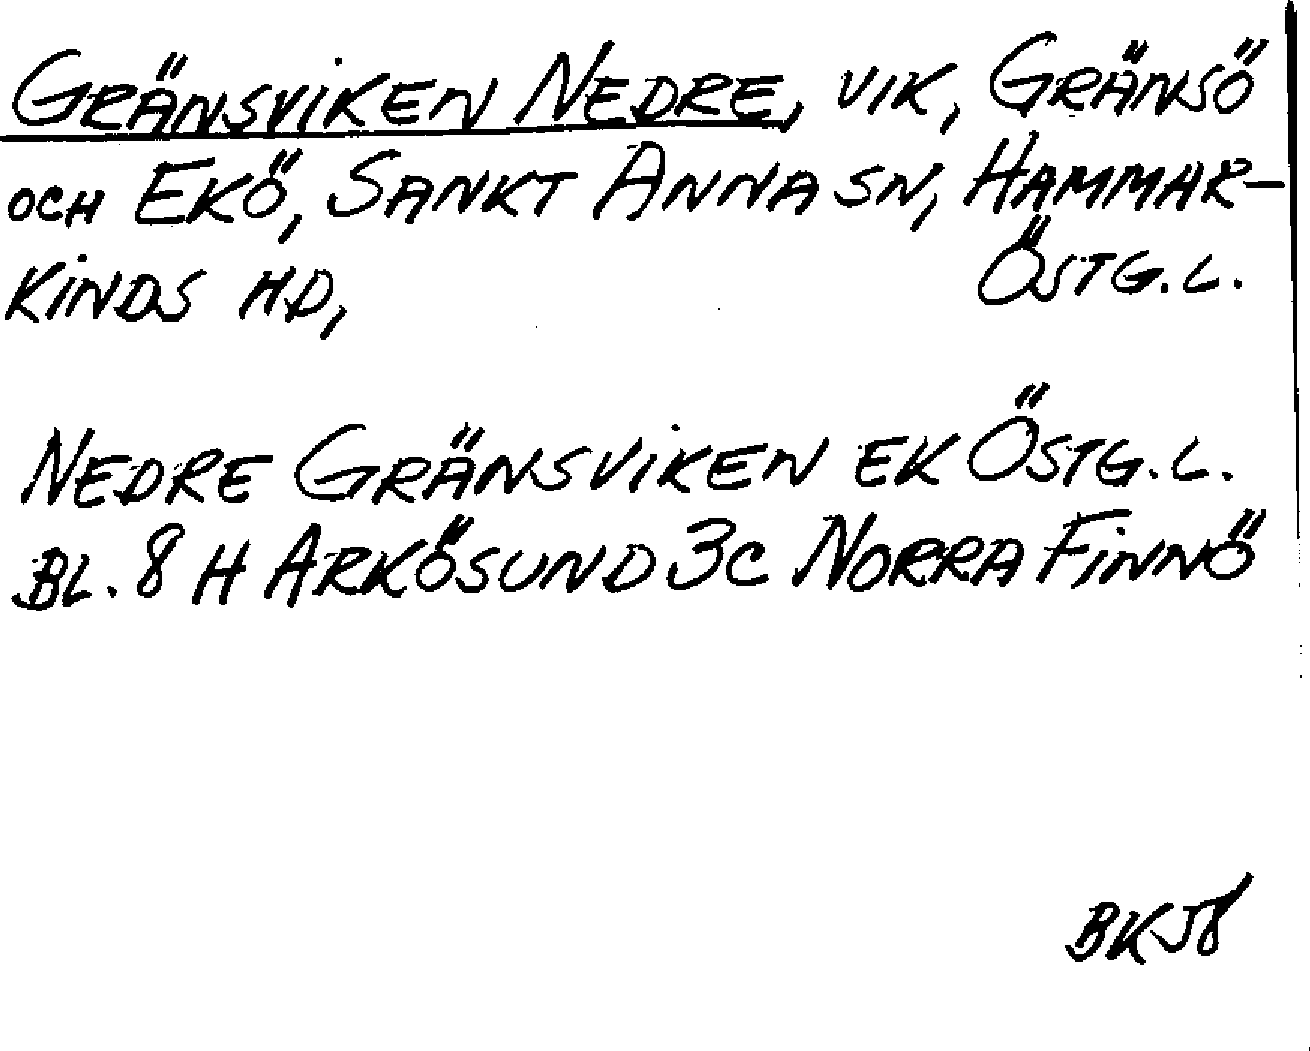 GRÄNSVIKEN NEDRE, VIK, GRÄNSÖ
OCH EKÖ, SANKT ANNA SN, HAMMAR-
KINDS HD, ÖSTG.L.
NEDRE GRÄNSVIKEN EK ÖSTG.L.
BL. 8 H ARKÖSUND 3C NORRA FINNÖ